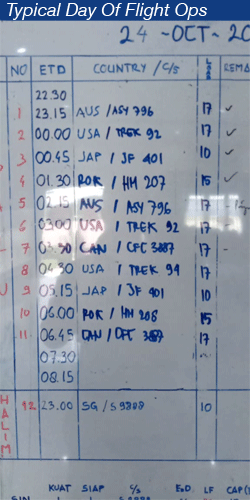 Typical Day Of Flight Ops
24-OCT-20
NO ETD COUNTRY / C/S REMA
22.30
1 23.15 AUS / ASY 796 17 ✓
2 00.00 USA / TREK 92 17 ✓
3 00.45 JAP / JF 401 10 ✓
4 01.30 ROK / HM 207 15 ✓
5 02.15 AUS / ASY 796 17
6 03.00 USA / TREK 92 17 -
7 CAN / CFC 17 -
8 04.30 USA / TREK 94 17
9 05.15 JAP / JF 401 10
10 06.00 ROK / HM 208 15
11 06.45 CAN / CFC 17
07.30
08.15
HALIM
12 23.00 SG / S 10
KUAT SIAP C/S LF CAP